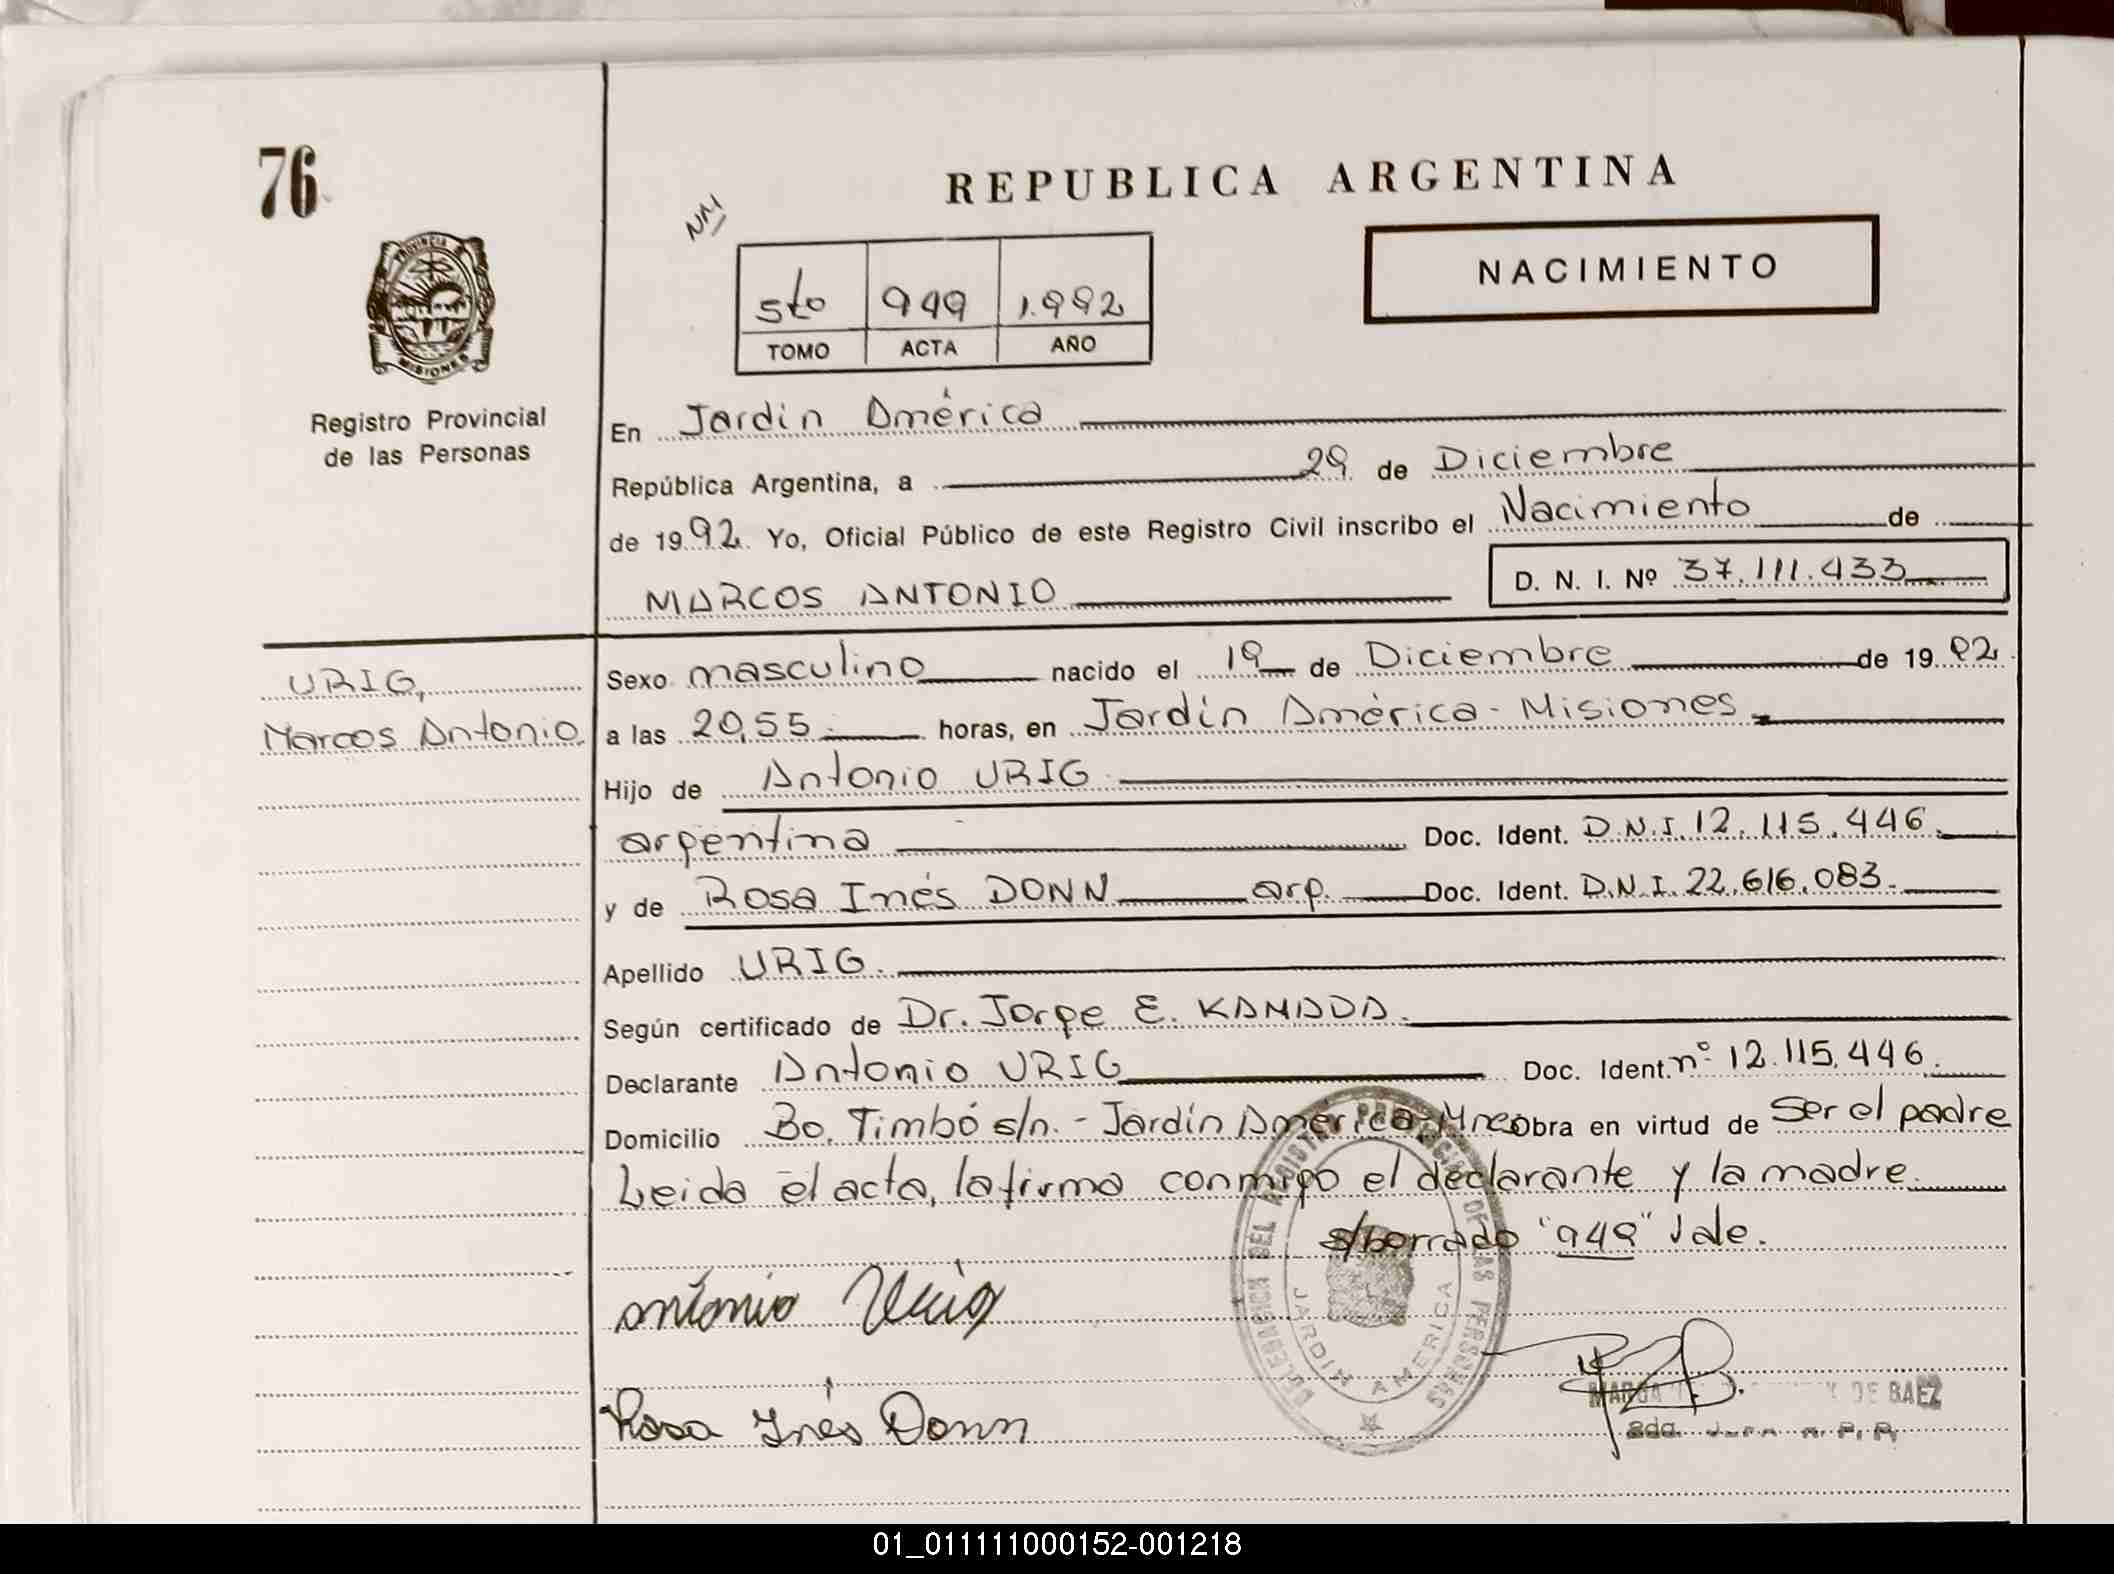 76
REPUBLICA ARGENTINA
NM
NACIMIENTO
5to 949 1.992
TOMO ACTA AÑO
PROVINCIA
MISIONES
Registro Provincial
de las Personas
En Jardín América
República Argentina, a 29 de Diciembre
de 1992. Yo, Oficial Público de este Registro Civil inscribo el Nacimiento de
MARCOS ANTONIO D. N. I. Nº 37.111.433
URIG,
Marcos Antonio
Sexo masculino nacido el 19 de Diciembre de 1992
a las 20,55 horas, en Jardín América - Misiones
Hijo de Antonio URIG
argentina Doc. Ident. D.N.I. 12.115.446.
y de Rosa Inés DONN arg. Doc. Ident. D.N.I. 22.616.083.
Apellido URIG.
Según certificado de Dr. Jorge E. KAMADA.
Declarante Antonio URIG Doc. Ident. nº 12.115.446.
Domicilio Bo. Timbó s/n. - Jardín América, Mnes Obra en virtud de Ser el padre
Leída el acta, la firma conmigo el declarante y la madre.
s/borrado "949" Vale.
Antonio Urig
Rosa Inés Donn
DELEGACION DEL REGISTRO PROVINCIAL DE LAS PERSONAS
JARDIN AMERICA
DE BAEZ